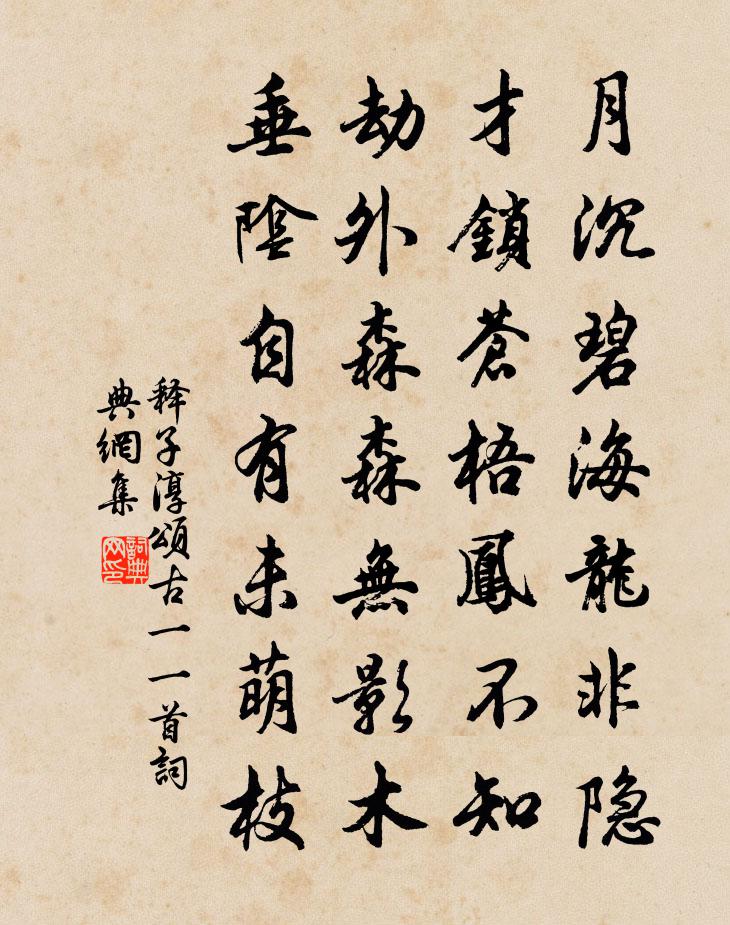 月沉碧海龍非隐
才鎖蒼梧鳳不知
劫外森森無影木
垂陰自有未萌枝
释子淳頌古一一首詞
典網集
詞典
网印